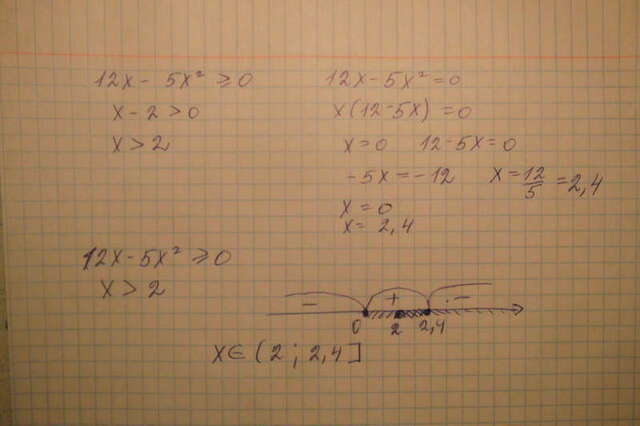 12x - 5x² ⩾ 0
x - 2 > 0
x > 2
12x - 5x² = 0
x(12 - 5x) = 0
x = 0 12 - 5x = 0
-5x = -12 x = 12/5 = 2,4
x = 0
x = 2,4
12x - 5x² ⩾ 0
x > 2
- + -
0 2 2,4
x ∈ (2 ; 2,4]